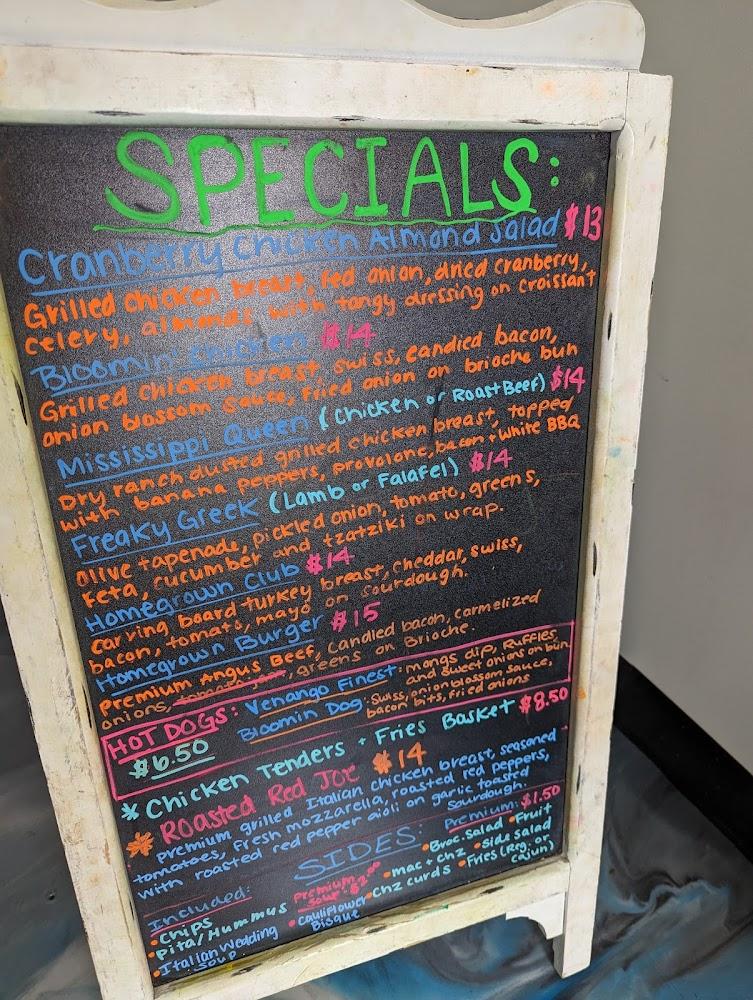 SPECIALS:
Cranberry Chicken Almond Salad $13
Grilled chicken breast, red onion, dried cranberry,
celery, almonds with tangy dressing on croissant
Bloomin' Chicken $14
Grilled chicken breast, swiss, candied bacon,
onion blossom sauce, fried onion on brioche bun
Mississippi Queen (Chicken or Roast Beef) $14
Dry ranch dusted grilled chicken breast, topped
with banana peppers, provolone, bacon + white BBQ
Freaky Greek (Lamb or Falafel) $14
Olive tapenade, pickled onion, tomato, greens,
Feta, cucumber and tzatziki on wrap.
Homegrown Club $14
carving board turkey breast, cheddar, swiss,
bacon, tomato, mayo on sourdough.
Homegrown Burger $15
Premium Angus Beef, candied bacon, carmelized
onions, greens on Brioche.
HOT DOGS: Venango Finest: mongs dip, Ruffles,
and sweet onions on bun
$6.50 Bloomin Dog: Swiss, onion blossom sauce,
bacon bits, fried onions
* Chicken Tenders + Fries Basket $8.50
* Roasted Red Joe $14
premium grilled Italian chicken breast, seasoned
tomatoes, fresh mozzarella, roasted red peppers,
with roasted red pepper aioli on garlic toasted
sourdough.
SIDES:
Included:
•Chips
•Pita/Hummus
•Italian Wedding
soup
Premium
soup: $2.00
•Cauliflower
Bisque
Premium: $1.50
•Broc. salad •Fruit
•mac + chz •Side salad
•Chz curds •Fries (Reg. or
cajun)